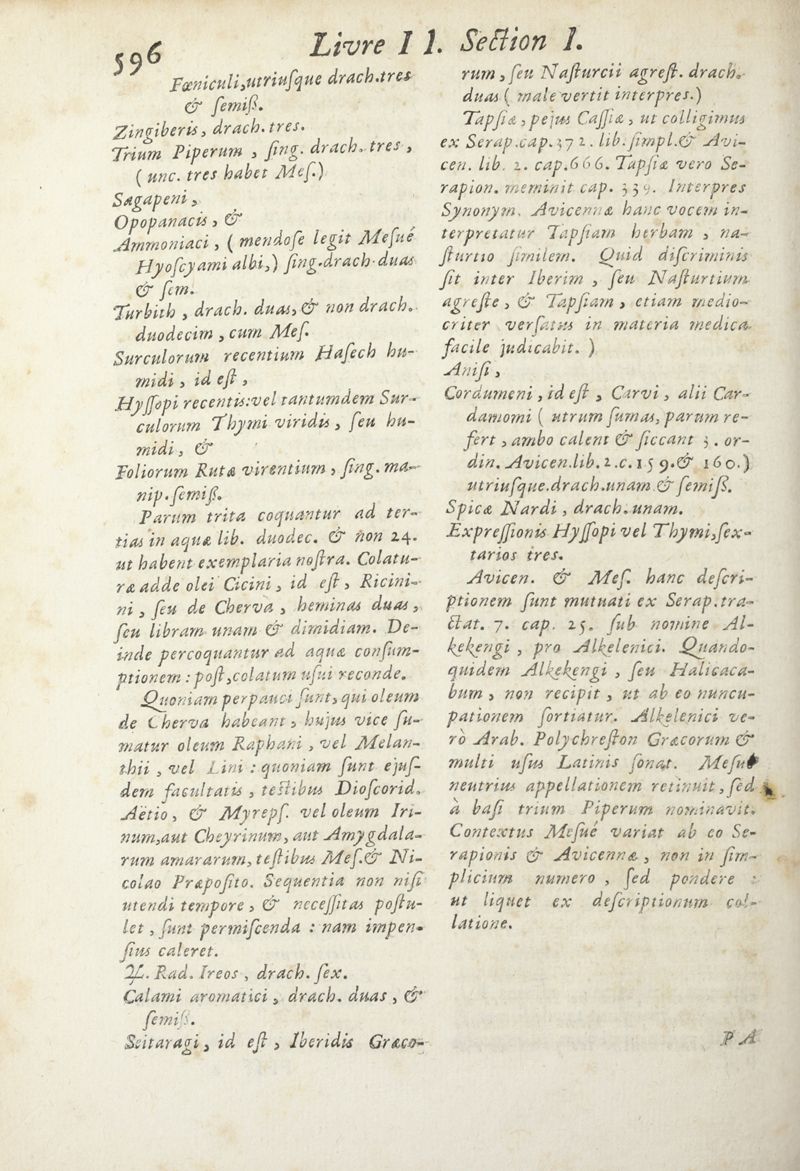 596
Livre I I. Section I.
Fœniculi,utriuſque drach.tres
& ſemiß.
Zingiberis, drach. tres.
Trium Piperum , ſing. drach. tres ,
( unc. tres habet Meſ.)
Sagapeni ,
Opopanacis , &
Ammoniaci , ( mendoſe legit Meſué
Hyoſcyami albi,) ſing.drach. duas
& ſem.
Turbith , drach. duas, & non drach.
duodecim , cum Meſ.
Surculorum recentium Haſech hu-
midi , id eſt ,
Hyſſopi recentis:vel tantumdem Sur-
culorum Thymi viridis , ſeu hu-
midi , &
Foliorum Rutæ virentium , ſing. ma-
nip. ſemiß.
Parum trita coquantur ad ter-
tias in aquæ lib. duodec. & non 24.
ut habent exemplaria noſtra. Colatu-
ræ adde olei Cicini , id eſt , Ricini-
ni , ſeu de Cherva , heminas duas ,
ſeu libram unam & dimidiam. De-
inde percoquantur ad aquæ conſum-
ptionem : poſt ,colatum uſui reconde.
Quoniam perpauci ſunt, qui oleum
de Cherva habeant , hujus vice ſu-
matur oleum Raphani , vel Melan-
thii , vel Lini : quoniam ſunt ejuſ-
dem facultatis , teſtibus Dioſcorid.
Aëtio , & Myrepſ. vel oleum Iri-
num,aut Cheyrinum, aut Amygdala-
rum amararum, teſtibus Meſ.& Ni-
colao Præpoſito. Sequentia non niſi
utendi tempore , & neceſſitas poſtu-
let , ſunt permiſcenda : nam impen-
ſius caleret.
℞. Rad. Ireos , drach. ſex.
Calami aromatici , drach. duas , &
ſemiß.
Seitaragi , id eſt , Iberidis Græco-
rum , ſeu Naſturcii agreſt. drach.
duas ( male vertit interpres.)
Tapſiæ , pejus Caſſiæ , ut colligimus
ex Serap.cap.372. lib.ſimpl.& Avi-
cen. lib. 2. cap.666. Tapſiæ vero Se-
rapion. meminit cap. 339. Interpres
Synonym. Avicennæ hanc vocem in-
terpretatur Tapſiam herbam , na-
ſturtio ſimilem. Quid diſcriminis
ſit inter Iberim , ſeu Naſturtium
agreſte , & Tapſiam , etiam medio-
criter verſatus in materia medica
facile judicabit. )
Aniſi ,
Cordumeni , id eſt , Carvi , alii Car-
damomi ( utrum ſumas, parum re-
fert , ambo calent & ſiccant 3. or-
din. Avicen.lib.2.c.159.& 160.)
utriuſque.drach.unam & ſemiß.
Spicæ Nardi , drach. unam.
Expreſſionis Hyſſopi vel Thymi,ſex-
tarios tres.
Avicen. & Meſ. hanc deſcri-
ptionem ſunt mutuati ex Serap.tra-
ctat. 7. cap. 25. ſub nomine Al-
kekengi , pro Alkelenici. Quando-
quidem Alkekengi , ſeu Halicaca-
bum , non recipit , ut ab eo nuncu-
pationem ſortiatur. Alkelenici ve-
rò Arab. Polychreſton Græcorum &
multi uſus Latinis ſonat. Meſué
neutrius appellationem retinuit , ſed
à baſi trium Piperum nominavit.
Contextus Meſué variat ab eo Se-
rapionis & Avicennæ , non in ſim-
plicium numero , ſed pondere :
ut liquet ex deſcriptionum col-
latione.
P A